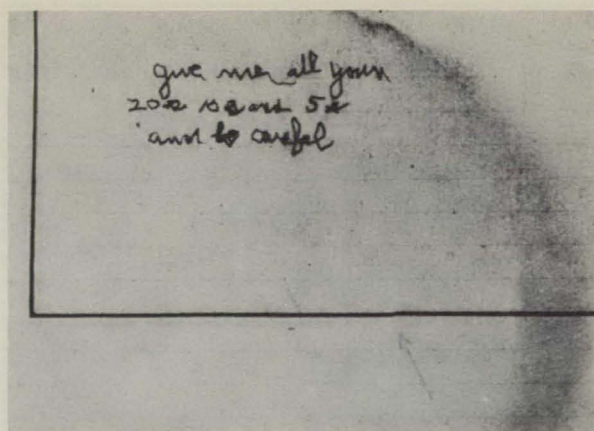 give me all your
20s 10s and 5s
and be careful